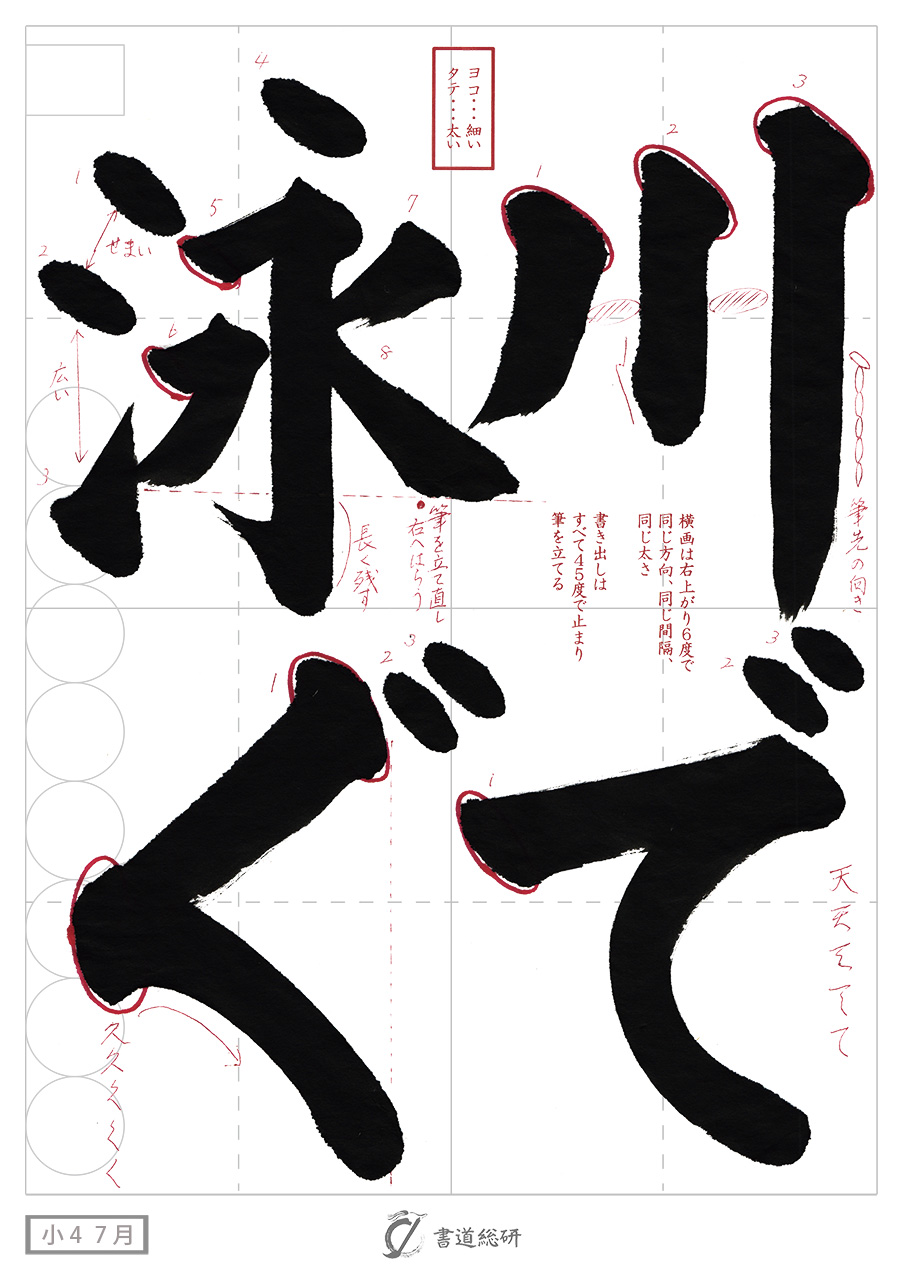 川で
泳ぐ
ヨコ・・・細い
タテ・・・太い
横画は右上がり6度で
同じ方向、同じ間隔、
同じ太さ
書き出しは
すべて45度で止まり
筆を立てる
3
2
1
筆先の向き
4
1
2
3
せまい
広い
5
6
7
8
筆を立て直し
右へはらう
長く残す
3
2
1
天天てて
1
2
3
久久くくく
小4 7月
書道総研